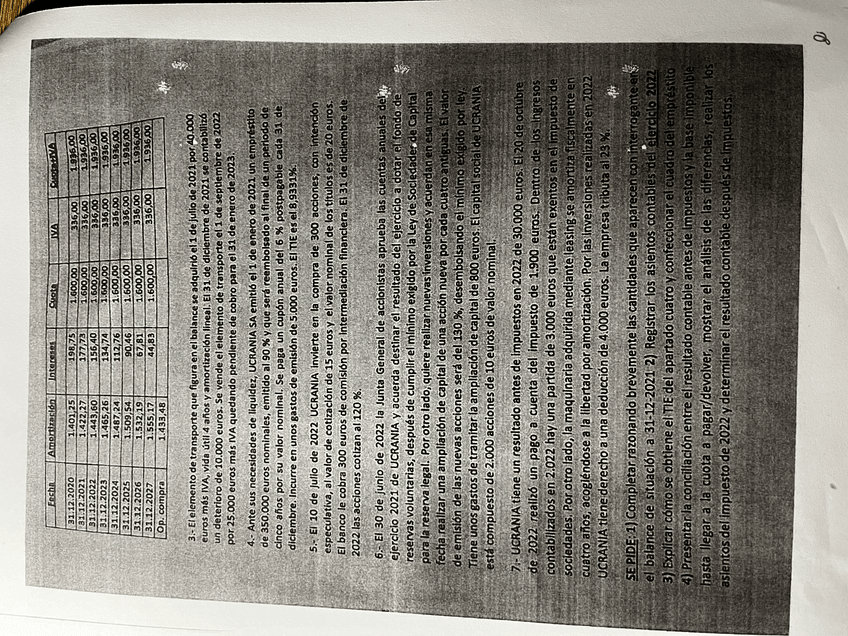 Fecha Amortización Intereses Cuota IVA Cuota+IVA
31.12.2020 1.401,25 198,75 1.600,00 336,00 1.936,00
31.12.2021 1.422,27 177,73 1.600,00 336,00 1.936,00
31.12.2022 1.443,60 156,40 1.600,00 336,00 1.936,00
31.12.2023 1.465,26 134,74 1.600,00 336,00 1.936,00
31.12.2024 1.487,24 112,76 1.600,00 336,00 1.936,00
31.12.2025 1.509,54 90,46 1.600,00 336,00 1.936,00
31.12.2026 1.532,19 67,81 1.600,00 336,00 1.936,00
31.12.2027 1.555,17 44,83 1.600,00 336,00 1.936,00
Op. compra 1.433,48
3.- El elemento de transporte que figura en el balance se adquirió el 1 de julio de 2021 por 40.000
euros más IVA, vida útil 4 años y amortización lineal. El 31 de diciembre de 2021 se contabilizó
un deterioro de 10.000 euros. Se vende el elemento de transporte el 1 de septiembre de 2022
por 25.000 euros más IVA quedando pendiente de cobro para el 31 de enero de 2023.
4.- Ante sus necesidades de liquidez, UCRANIA SA emitió el 1 de enero de 2021 un empréstito
de 350.000 euros nominales, emitido al 90 % y que será reembolsado al final de un periodo de
cinco años por su valor nominal. Se paga un cupón anual del 6 % postpagable cada 31 de
diciembre. Incurre en unos gastos de emisión de 5.000 euros. El TIE es el 8,9331%.
5.- El 10 de julio de 2022 UCRANIA invierte en la compra de 300 acciones, con intención
especulativa, al valor de cotización de 15 euros y el valor nominal de los títulos es de 20 euros.
El banco le cobra 300 euros de comisión por intermediación financiera. El 31 de diciembre de
2022 las acciones cotizan al 120 %.
6.- El 30 de junio de 2022 la Junta General de accionistas aprueba las cuentas anuales del
ejercicio 2021 de UCRANIA y acuerda destinar el resultado del ejercicio a dotar el fondo de
reservas voluntarias, después de cumplir el mínimo exigido por la Ley de Sociedades de Capital
para la reserva legal. Por otro lado, quiere realizar nuevas inversiones y acuerdan en esa misma
fecha realizar una ampliación de capital de una acción nueva por cada cuatro antiguas. El valor
de emisión de las nuevas acciones será del 130 %, desembolsando el mínimo exigido por ley.
Tiene unos gastos de tramitar la ampliación de capital de 800 euros. El capital social de UCRANIA
está compuesto de 2.000 acciones de 10 euros de valor nominal.
7.- UCRANIA tiene un resultado antes de impuestos en 2022 de 30.000 euros. El 20 de octubre
de 2022 realizó un pago a cuenta del impuesto de 1.900 euros. Dentro de los ingresos
contabilizados en 2.022 hay una partida de 3.000 euros que están exentos en el impuesto de
sociedades. Por otro lado, la maquinaria adquirida mediante leasing se amortiza fiscalmente en
cuatro años, acogiéndose a la libertad por amortización. Por las inversiones realizadas en 2022
UCRANIA tiene derecho a una deducción de 4.000 euros. La empresa tributa al 23 %.
SE PIDE: 1) Completar razonando brevemente las cantidades que aparecen con interrogante en
el balance de situación a 31-12-2021 2) Registrar los asientos contables del ejercicio 2022
3) Explicar cómo se obtiene el TIE del apartado cuatro y confeccionar el cuadro del empréstito
4) Presentar la conciliación entre el resultado contable antes de impuestos y la base imponible
hasta llegar a la cuota a pagar/devolver, mostrar el análisis de las diferencias, realizar los
asientos del impuesto de 2022 y determinar el resultado contable después de impuestos.